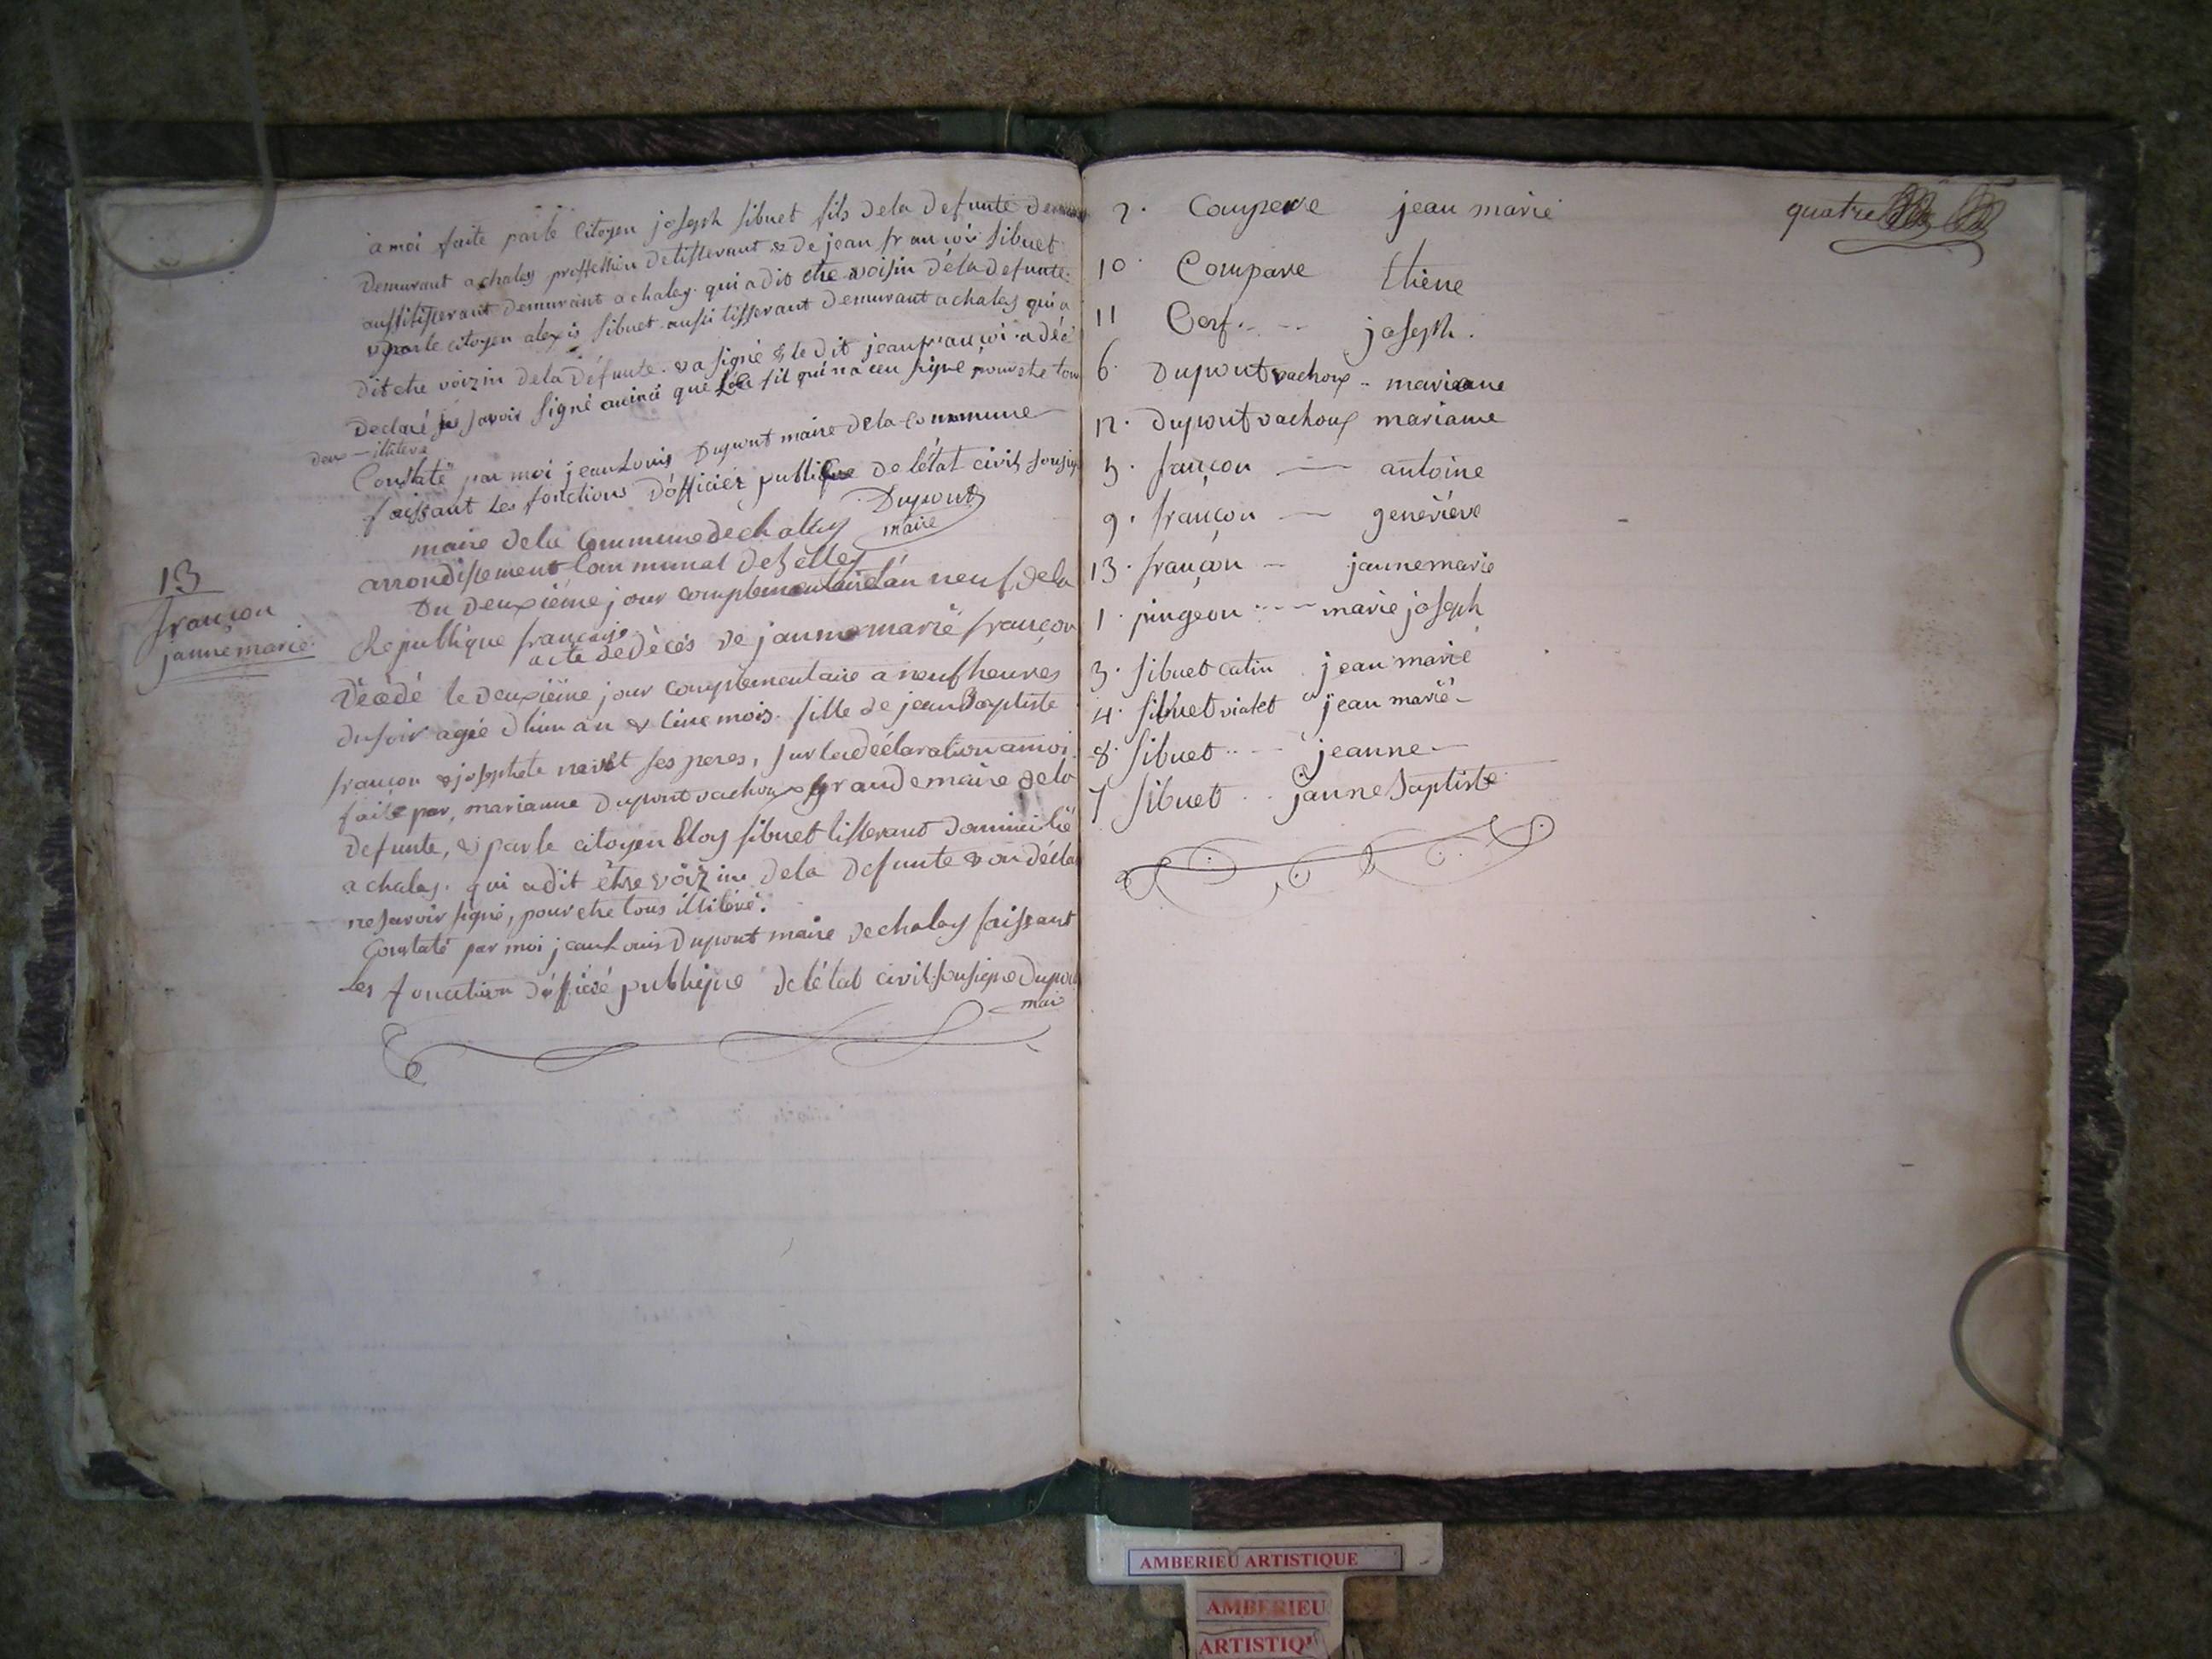 à moi faite par le Citoyen joseph sibuet fils de la defunte
demurant a chaley proffession de tisserant & de jean françois sibuet
aussi tisserant demurant a chaley. qui a dit etre voisin de la defunte.
& par le citoyen alexis sibuet aussi tisserant demurant a chaley qui a
dit etre voizin de la défunte. & a signé & le dit jean françoi a
declaré savoir signé que fil qui na signe pour etre tou
illiteré
Constaté par moi jean Louis Dupont maire de la commune
faissant Les fonctions d'officier publique de l'état civil
Dupont
maire de la Commune de chaley maire
arrondissement Communal de
13
françon
janne marie.
Du deuxiéme jour complementaire l'an neuf de la
Republique française
acte de décès de janne marie françon
décédé le deuxiéme jour complementaire a neuf heures
du soir agée d'hun an & cinc mois. fille de jean Baptiste
françon & josephete ses peres, sur la déclaration a moi
faite par, marianne Dupont vachoux grande maire de la
defunte, & par le citoyen Eloy sibuet tisserant domicilié
a chaley. qui a dit être voizin de la defunte & on décla
ne savoir signé, pour etre tous illiteré.
Constaté par moi jean Louis Dupont maire de chaley faissant
Les fonction d'officié publique de l'état civil sousigne Dupont
mair
quatre
2. Compere jean marie
10. Compare Etiene
11 Cerf. - - joseph.
6. Dupont vachoux .. mariane
12. dupont vachoux marianne
5. françon — antoine
9. françon — geneviéve
13. françon — janne marie
1. pingeon - - - marie joseph
3. sibuet catin jean marie
4. sibuet violet jean marié -
8. sibuet .. - jeanne -
7 sibuet .. janne Baptiste
AMBERIEU ARTISTIQUE
AMBERIEU
ARTISTIQU